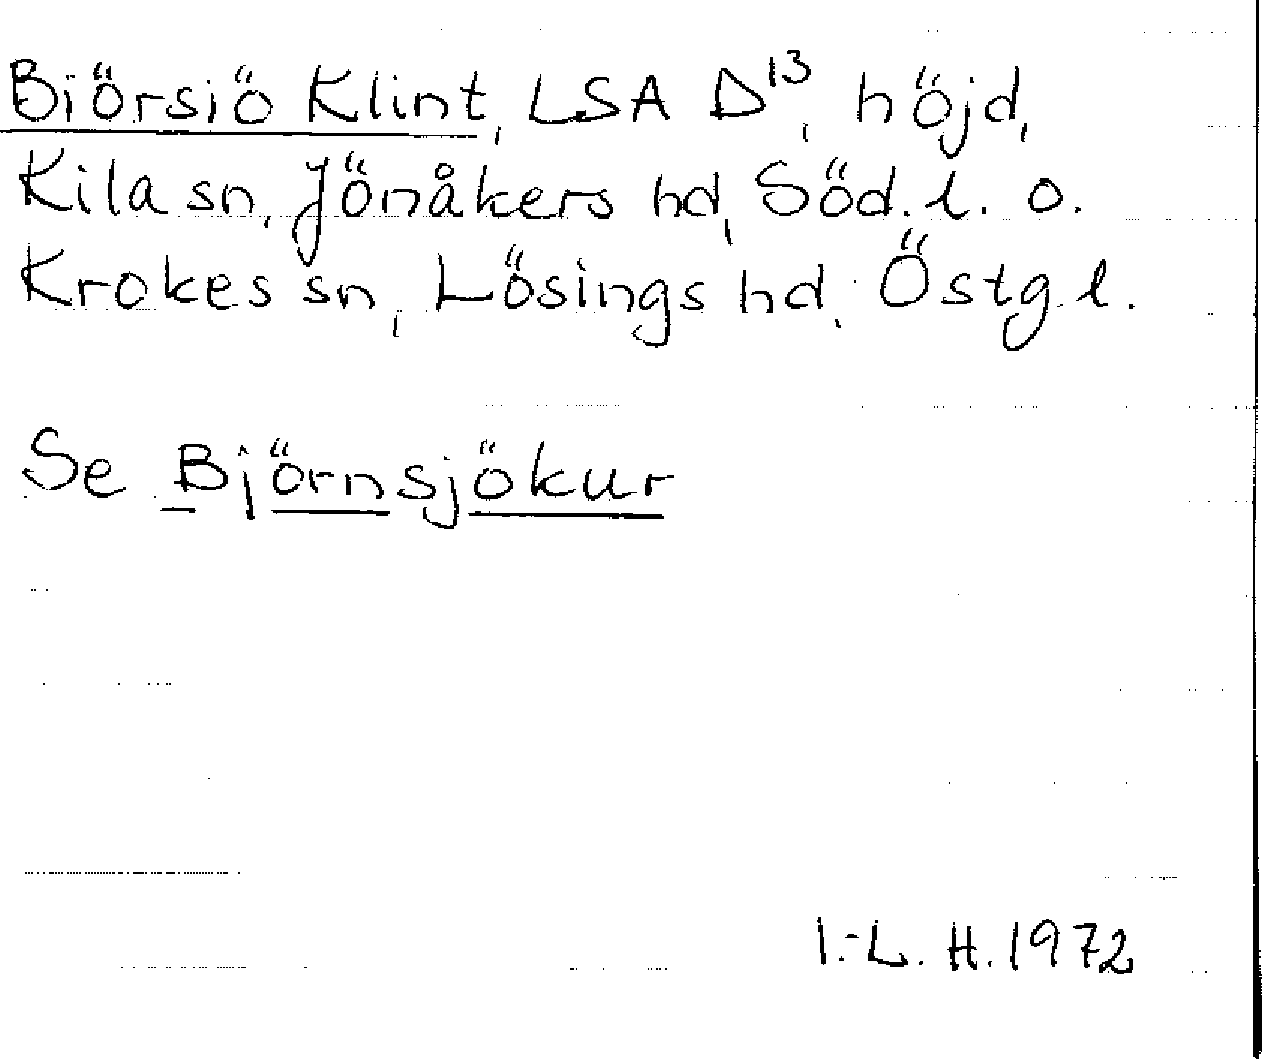 Biörsiö Klint, LSA D¹³, höjd,
Kila sn, Jönåkers hd, Söd. l. o.
Krokes sn, Lösings hd, Östg. l.
Se Björnsjökur
I.-L. H. 1972